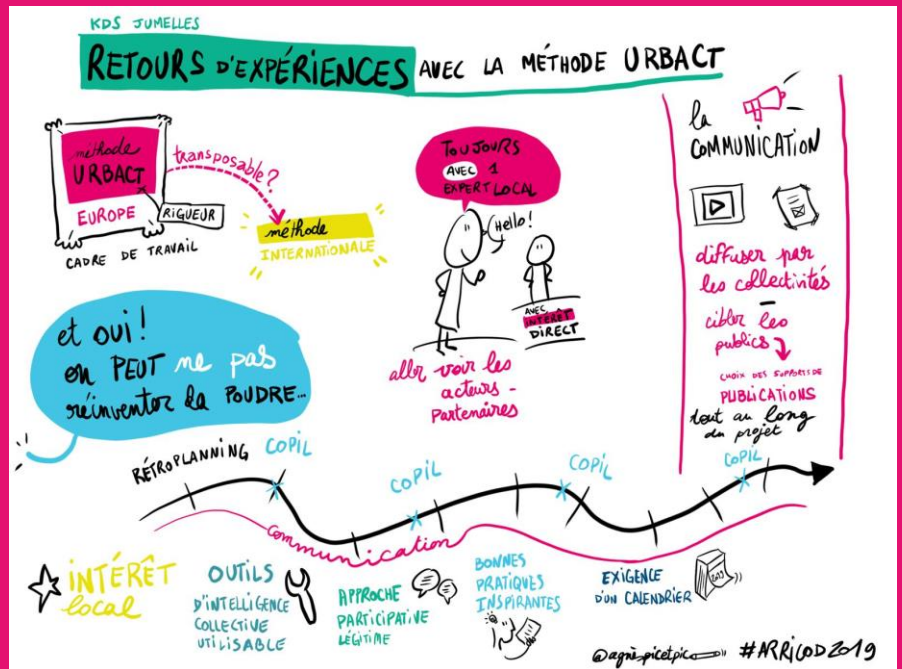 KDS JUMELLES
RETOURS D'EXPÉRIENCES AVEC LA MÉTHODE URBACT
méthode
URBACT
EUROPE
RIGUEUR
CADRE DE TRAVAIL
transposable?
méthode
INTERNATIONALE
TOUJOURS
AVEC 1
EXPERT LOCAL
Hello!
AVEC
INTÉRÊT
DIRECT
aller voir les
acteurs -
partenaires
la
COMMUNICATION
diffuser par
les collectivités
cibler les
publics
CHOIX DES SUPPORTS DE
PUBLICATIONS
tout au long
du projet
et oui!
on PEUT ne pas
réinventer la POUDRE...
RÉTROPLANNING
COPIL
COPIL
COPIL
COPIL
communication
INTÉRÊT
local
OUTILS
D'INTELLIGENCE
COLLECTIVE
UTILISABLE
APPROCHE
PARTICIPATIVE
LÉGITIME
BONNES
PRATIQUES
INSPIRANTES
EXIGENCE
D'UN CALENDRIER
2019
@agnèspicetpic #ARRICOD2019